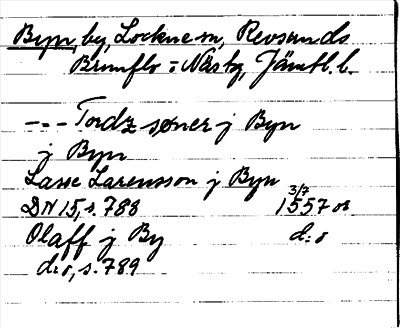 Byn, by, Lockne sn, Revsunds
Brunflo o Näs tg, Jämtl. l.
--- Tordz søner j Byn
j Byn
Lasse Larensson j Byn
DN 15, s. 788 3/7 1557 or
Olaff j By d:o
d:o, s. 789